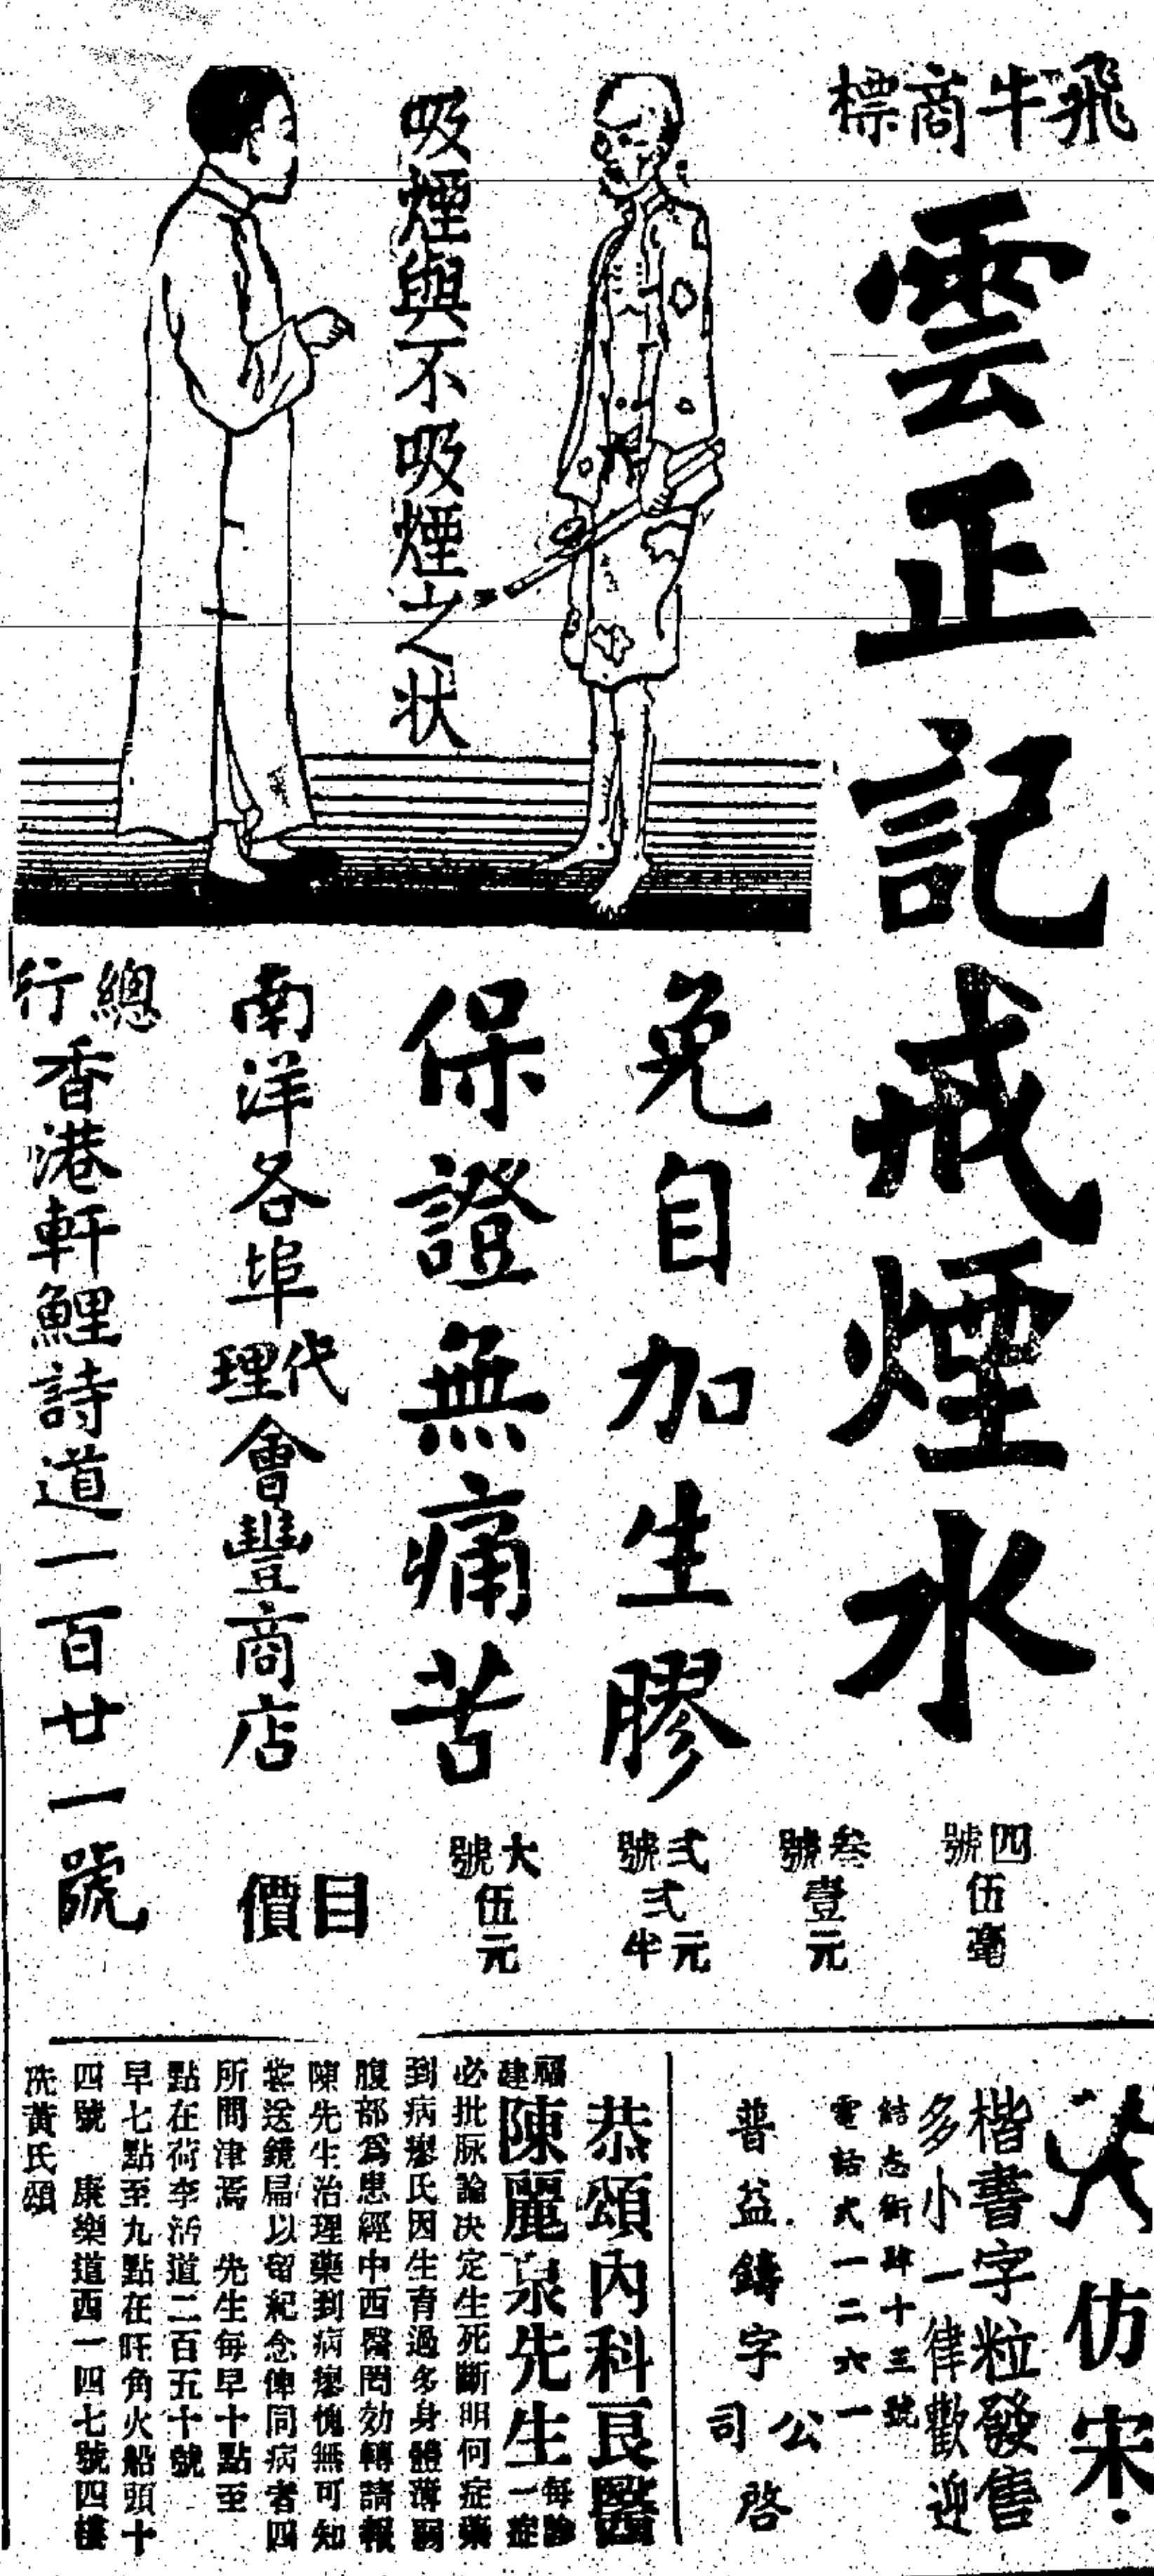 飛牛商標
雲正記戒煙水
吸煙與不吸煙之状
免自加生膠
保證無痛苦
南洋各埠代理會豐商店
總行香港軒鯉詩道一百廿一號
四號伍毫
叁號壹元
弍號弍元半
大號伍元
價目
仿宋
楷書字粒發售
多小一律歡迎
結志街肆十三號
電話弍一二六一
普益鑄字公司啓
恭頌內科良醫
福建陳麗泉先生每診一症
必批脉論决定生死斷明何症藥
到病瘳氏因生育過多身體薄弱
腹部爲患經中西醫罔効轉請報
陳先生治理藥到病瘳愧無可知
送鏡扁以留紀念俾同病者四
所問津焉 先生每早十點至
點在荷李活道二百五十號
早七點至九點在旺角火船頭十
四號 康樂道西一四七號四樓
冼黃氏頌